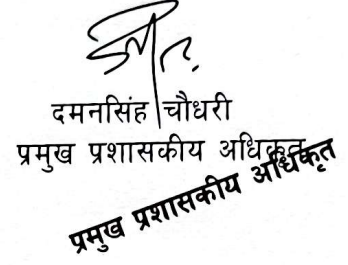 दमनसिंह चौधरी
प्रमुख प्रशासकीय अधिकृत
प्रमुख प्रशासकीय अधिकृत